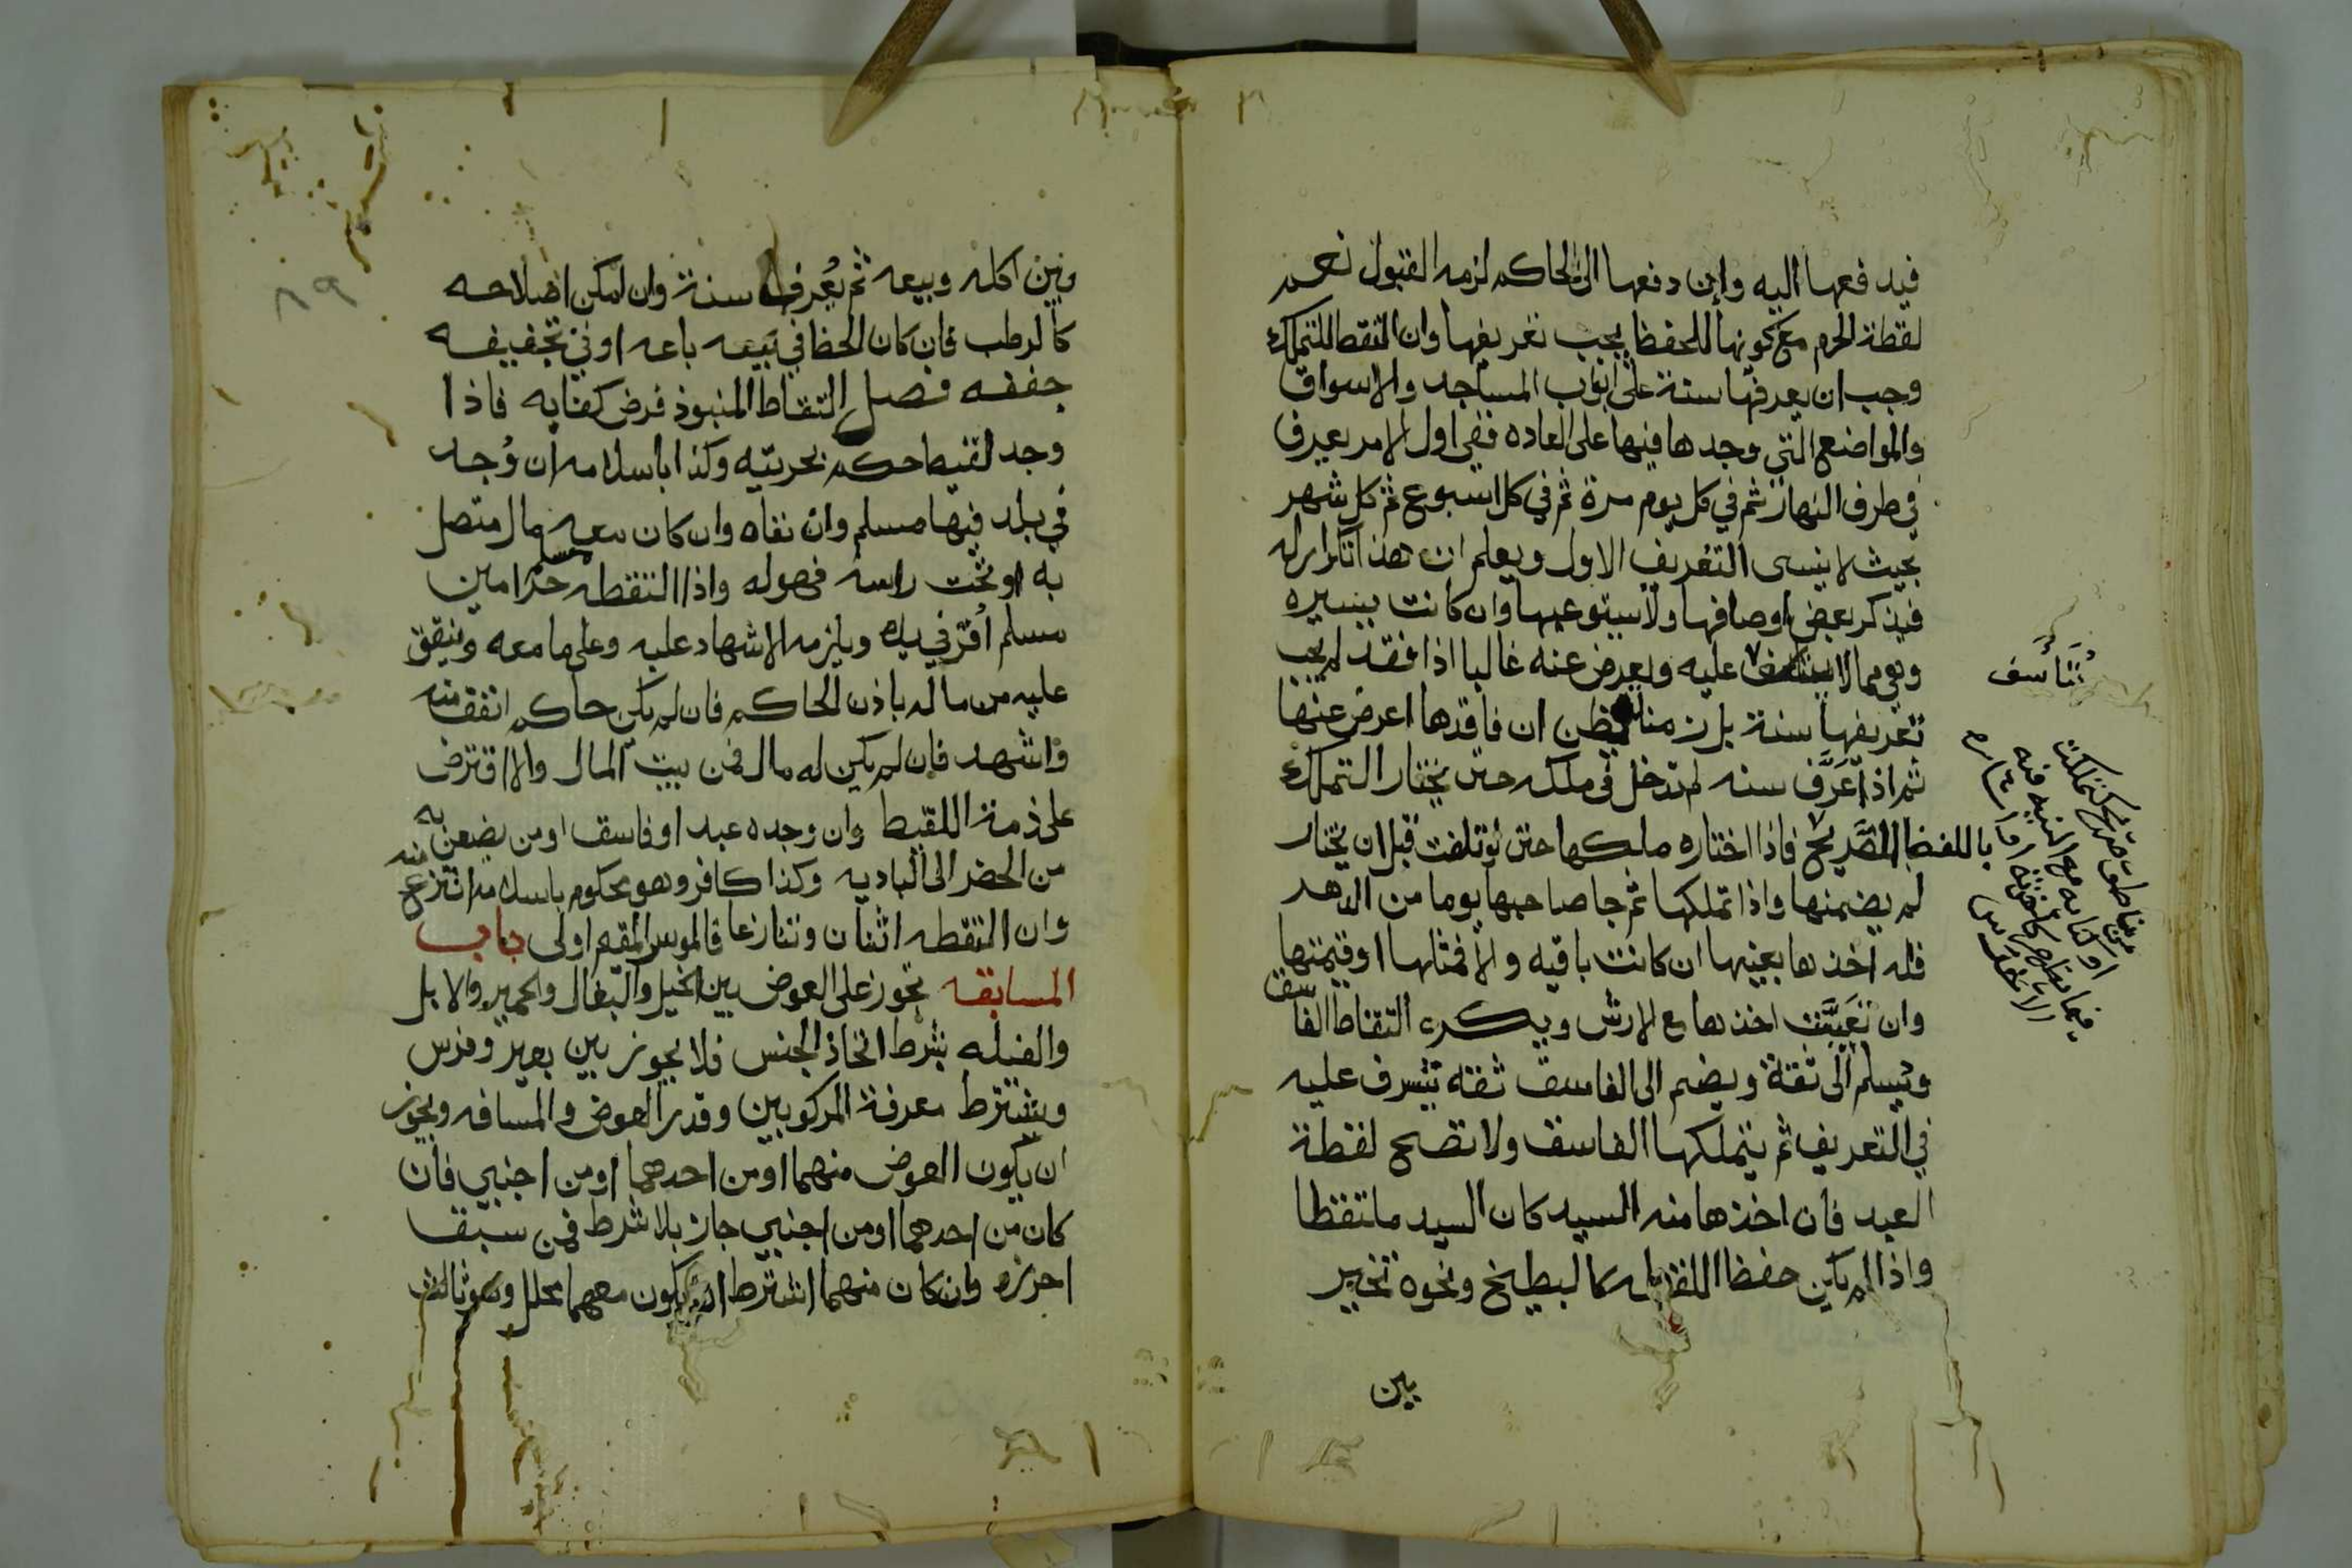 فيدفعها اليه وان دفعها الى الحاكم لزمه القبول نعم
لقطة الحرم مع كونها للحفظ يجب تعريفها وان التقط للتملك
وجب ان يعرفها سنة على ابواب المساجد والاسواق
والمواضع التي وجدها فيها على العاده ففي اول الامر يعرف
في طرف النهار ثم في كل يوم مرة ثم في كل اسبوع ثم كل شهر
بحيث لا ينسى التعريف الاول ويعلم ان هذا تكرار له
فيذكر بعض اوصافها ولا يستوعبها وان كانت يسيره
وهي مما لا يتاسف عليه ويعرض عنه غالبا اذا فقد لم يجب
تعريفها سنة بل زمنا يظن ان فاقدها اعرض عنها
ثم اذا عَرَّف سنه لم تدخل في ملكه حتى يختار التملك
باللفظ الصريح فاذا اختاره ملكها حتى لو تلفت قبل ان يختار
لم يضمنها واذا تملكها ثم جا صاحبها يوما من الدهر
فله اخذها بعينها ان كانت باقيه والا فمثلها او قيمتها
وان تَعَيَّبَت اخذها مع الارش ويكره التقاط الفاسق
وتسلم الى ثقة ويضم الى الفاسق ثقه يشرف عليه
في التعريف ثم يتملكها الفاسق ولا تصح لقطة
العبد فان اخذها منه السيد كان السيد ملتقطا
واذا لم يكن حفظ اللقطه كالبطيخ ونحوه تخير
بين
يتأسف
من ناطق صريح كتملكت
او كنايه مع النيه فيه
الاخرس
٨٩
وبين اكله وبيعه ثم يُعرف سنة وان امكن اصلاحه
كالرطب فان كان الحظ في بيعه باعه او في تجفيفه
جففه فصل التقاط المنبوذ فرض كفايه فاذا
وجد لقيط حكم بحريته وكذا باسلامه ان وُجد
في بلد فيها مسلم وان نفاه وان كان معه مال متصل
به او تحت راسه فهو له واذا التقطه حر مسلم امين
مسلم أُقر في يده ويلزمه الاشهاد عليه وعلى ما معه وينفق
عليه من ماله باذن الحاكم فان لم يكن حاكم انفق منه
واشهد فان لم يكن له مال فمن بيت المال والا اقترض
على ذمة اللقيط وان وجده عبد او فاسق او من يضعن به
من الحضر الى الباديه وكذا كافر وهو محكوم باسلامه انتزع منه
وان التقطه اثنان وتنازعا فالموسر المقيم اولى باب
المسابقه تجوز على العوض بين الخيل والبغال والحمير والابل
والفيله بشرط اتحاد الجنس فلا يجوز بين بعير وفرس
ويشترط معرفة المركوبين وقدر العوض والمسافه ويجوز
ان يكون العوض منهما او من احدهما او من اجنبي فان
كان من احدهما او من اجنبي جاز بلا شرط فمن سبق
احرزه وان كان منهما اشترط ان يكون معهما محلل وهو ثالث